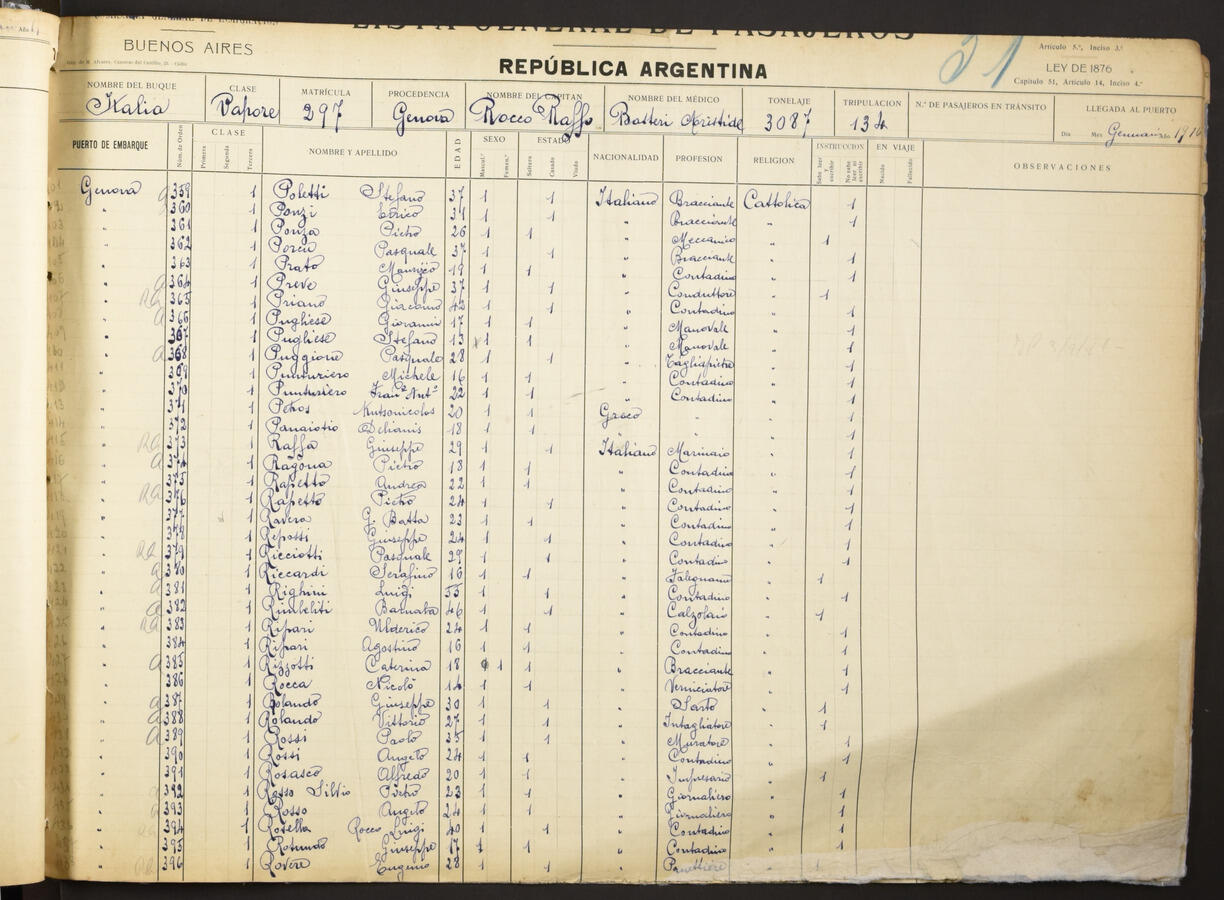 LISTA GENERAL DE PASAJEROS
BUENOS AIRES
REPÚBLICA ARGENTINA
31
Artículo 5º, Inciso 3º
LEY DE 1876
Capítulo 51, Artículo 14, Inciso 4º
NOMBRE DEL BUQUE CLASE MATRÍCULA PROCEDENCIA NOMBRE DEL CAPITAN NOMBRE DEL MÉDICO TONELAJE TRIPULACION N.º DE PASAJEROS EN TRÁNSITO LLEGADA AL PUERTO
Italia Vapore 297 Genova Rocco Raffo Basteri Aristide 3087 134 Dia Mes Gennaio Año 1910
PUERTO DE EMBARQUE Núm. de Orden CLASE Primera Segunda Tercera NOMBRE Y APELLIDO EDAD SEXO Mascul.º Femen.º ESTADO Soltero Casado Viudo NACIONALIDAD PROFESION RELIGION INSTRUCCION Sabe leer y escribir No sabe leer ni escribir EN VIAJE Nacido Fallecido OBSERVACIONES
Genova 359 1 Poletti Stefano 37 1 1 Italiano Bracciante Cattolica 1
" 360 1 Ponzi Errico 31 1 1 " Bracciante " 1
" 361 1 Ponza Pietro 26 1 1 " Meccanico " 1
" 362 1 Porcu Pasquale 37 1 1 " Bracciante " 1
" 363 1 Prato Maurizio 19 1 1 " Contadino " 1
" 364 1 Preve Giuseppe 37 1 1 " Conduttore " 1
" 365 1 Priano Giacomo 42 1 1 " Contadino " 1
" 366 1 Pugliese Giovanni 17 1 1 " Manovale " 1
" 367 1 Pugliese Stefano 13 1 1 " Manovale " 1
" 368 1 Puggioni Pasquale 28 1 1 " Tagliapietre " 1
" 369 1 Punturiero Michele 16 1 1 " Contadino " 1
" 370 1 Punturiero Fran.º Ant.º 22 1 1 " Contadino " 1
" 371 1 Petros Kutsonicolos 20 1 1 Greco " " 1
" 372 1 Panaiotio Delianis 18 1 1 " " " 1
" 373 1 Raffa Giuseppe 29 1 1 Italiano Marinaio " 1
" 374 1 Ragona Pietro 18 1 1 " Contadino " 1
" 375 1 Rapetto Andrea 22 1 1 " Contadino " 1
" 376 1 Rapetto Pietro 24 1 1 " Contadino " 1
" 377 1 Ravera G. Batta 23 1 1 " Contadino " 1
" 378 1 Repossi Giuseppe 24 1 1 " Contadino " 1
" 379 1 Ricciotti Pasquale 29 1 1 " Contadino " 1
" 380 1 Riccardi Serafino 16 1 1 " Falegname " 1
" 381 1 Righini Luigi 55 1 1 " Contadino " 1
" 382 1 Rimbeliti Barnaba 46 1 1 " Calzolaio " 1
" 383 1 Ripari Ulderico 24 1 1 " Contadino " 1
" 384 1 Ripari Agostino 16 1 1 " Contadino " 1
" 385 1 Rizzotti Caterina 18 1 1 " Bracciante " 1
" 386 1 Rocca Nicolò 14 1 1 " Verniciatore " 1
" 387 1 Rolando Giuseppe 30 1 1 " Sarto " 1
" 388 1 Rolando Vittorio 27 1 1 " Intagliatore " 1
" 389 1 Rossi Paolo 35 1 1 " Muratore " 1
" 390 1 Rossi Angelo 24 1 1 " Contadino " 1
" 391 1 Rosasco Alfredo 20 1 1 " Impresario " 1
" 392 1 Rosso Silvio Pietro 23 1 1 " Giornaliero " 1
" 393 1 Rosso Angelo 24 1 1 " Giornaliero " 1
" 394 1 Rosella Rocco Luigi 40 1 1 " Contadino " 1
" 395 1 Rotundo Giuseppe 17 1 1 " Contadino " 1
" 396 1 Rovere Eugenio 28 1 1 " Panettiere 1